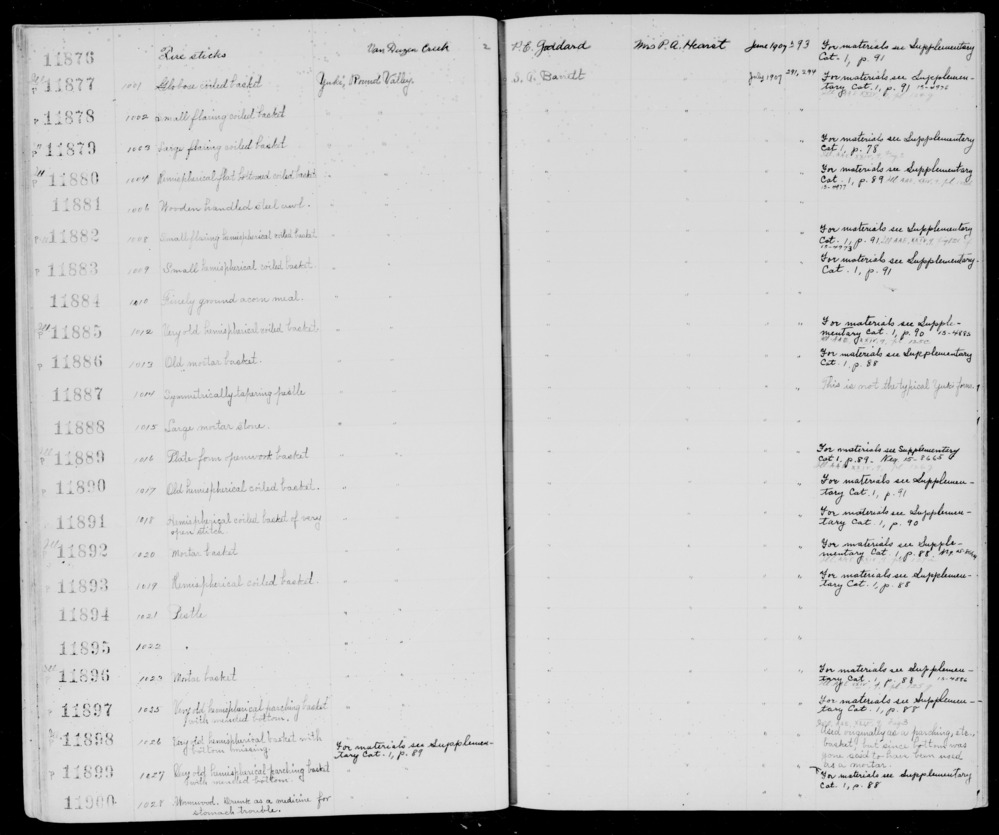 11876 Fire sticks Van Duzen Creek 2 P. E. Goddard Mrs P. A. Hearst June 1907 293 For materials see Supplementary
Cat. 1, p. 91
11877 1001 Globose coiled basket Yuki, Round Valley. S. A. Barrett July 1907 291, 294 For materials see Supplemen-
tary Cat. 1, p. 91
11878 1002 Small flaring coiled basket " "
11879 1003 Large flaring coiled basket For materials see Supplementary
Cat. 1, p. 78
11880 1004 Hemispherical flat bottomed coiled basket For materials see Supplementary
Cat. 1, p. 89
15-4977
11881 1006 Wooden handled steel awl.
11882 1008 Small flaring hemispherical coiled basket For materials see Supplementary
Cat. 1, p. 91
15-4973
11883 1009 Small hemispherical coiled basket For materials see Supplementary
Cat. 1, p. 91
11884 1010 Finely ground acorn meal.
11885 1012 Very old hemispherical coiled basket For materials see Supple-
mentary Cat. 1, p. 90 15-4885
11886 1013 Old mortar basket. For materials see Supplementary
Cat. 1, p. 88
11887 1014 Symmetrically tapering pestle This is not the typical Yuki form.
11888 1015 Large mortar stone.
11889 1016 Plate form openwork basket For materials see Supplementary
Cat 1, p. 89. Neg 15-8665
11890 1017 Old hemispherical coiled basket. For materials see Supplemen-
tary Cat. 1, p. 91
11891 1018 Hemispherical coiled basket of very
open stitch For materials see Supplemen-
tary Cat. 1, p. 90
11892 1020 Mortar basket For materials see Supple-
mentary Cat. 1, p. 88
11893 1019 Hemispherical coiled basket. For materials see Supplemen-
tary Cat. 1, p. 88
11894 1021 Pestle
11895 1022 "
11896 1023 Mortar basket For materials see Supplemen-
tary Cat. 1, p. 88 15-4886
11897 1025 Very old hemispherical parching basket
with mended bottom. For materials see Supplemen-
tary Cat. 1, p. 88
11898 1026 Very old hemispherical basket with
bottom missing. For materials see Supplemen-
tary Cat. 1, p. 89 Used originally as a parching, etc.,
basket, but since bottom was
gone said to have been used
as a mortar.
11899 1027 Very old hemispherical parching basket
with mended bottom. For materials see Supplementary
Cat. 1, p. 88
11900 1028 Wormwood. Drunk as a medicine for
stomach trouble.